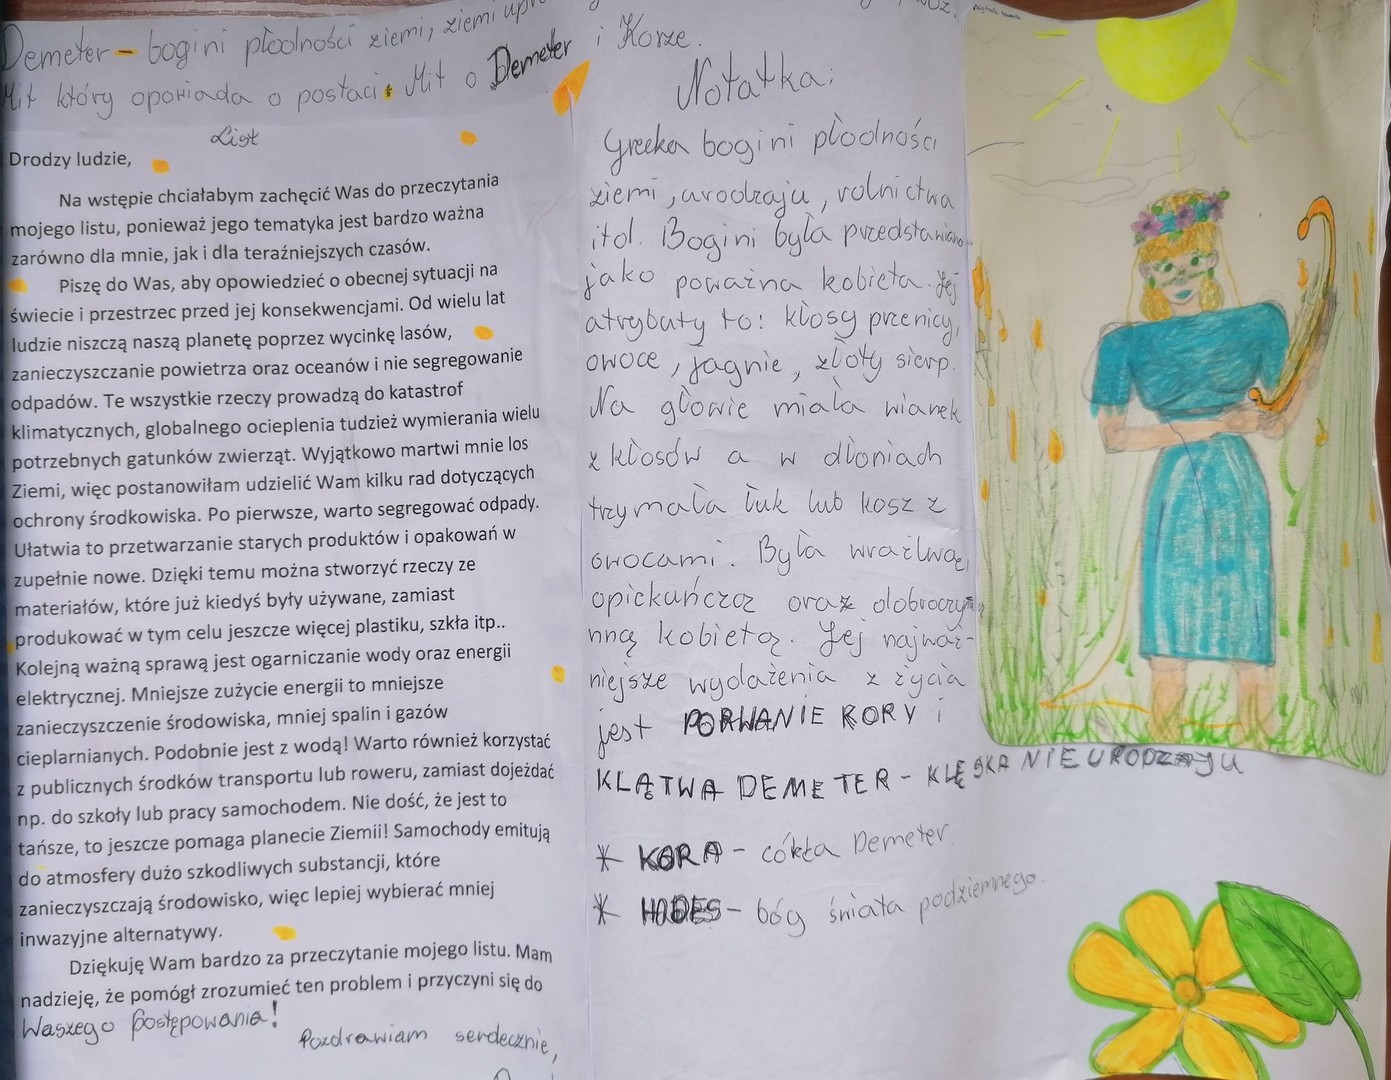 Demeter - bogini płodności ziemi, ziemi
Mit który opowiada o postaci: Mit o Demeter i Korze.
List
Drodzy ludzie,
Na wstępie chciałabym zachęcić Was do przeczytania
mojego listu, ponieważ jego tematyka jest bardzo ważna
zarówno dla mnie, jak i dla teraźniejszych czasów.
Piszę do Was, aby opowiedzieć o obecnej sytuacji na
świecie i przestrzec przed jej konsekwencjami. Od wielu lat
ludzie niszczą naszą planetę poprzez wycinkę lasów,
zanieczyszczanie powietrza oraz oceanów i nie segregowanie
odpadów. Te wszystkie rzeczy prowadzą do katastrof
klimatycznych, globalnego ocieplenia tudzież wymierania wielu
potrzebnych gatunków zwierząt. Wyjątkowo martwi mnie los
Ziemi, więc postanowiłam udzielić Wam kilku rad dotyczących
ochrony środkowiska. Po pierwsze, warto segregować odpady.
Ułatwia to przetwarzanie starych produktów i opakowań w
zupełnie nowe. Dzięki temu można stworzyć rzeczy ze
materiałów, które już kiedyś były używane, zamiast
produkować w tym celu jeszcze więcej plastiku, szkła itp..
Kolejną ważną sprawą jest ogarniczanie wody oraz energii
elektrycznej. Mniejsze zużycie energii to mniejsze
zanieczyszczenie środowiska, mniej spalin i gazów
cieplarnianych. Podobnie jest z wodą! Warto również korzystać
z publicznych środków transportu lub roweru, zamiast dojeżdać
np. do szkoły lub pracy samochodem. Nie dość, że jest to
tańsze, to jeszcze pomaga planecie Ziemii! Samochody emitują
do atmosfery dużo szkodliwych substancji, które
zanieczyszczają środowisko, więc lepiej wybierać mniej
inwazyjne alternatywy.
Dziękuję Wam bardzo za przeczytanie mojego listu. Mam
nadzieję, że pomógł zrozumieć ten problem i przyczyni się do
Waszego postępowania!
Pozdrawiam serdecznie,
Notatka:
Grecka bogini płodności
ziemi, urodzaju, rolnictwa
itd. Bogini była przedstawiana
jako poważna kobieta. Jej
atrybuty to: kłosy przenicy,
owoce, jagnie, złoty sierp.
Na głowie miała wianek
z kłosów a w dłoniach
trzymała łuk lub kosz z
owocami. Była wrażliwą,
opiekuńczą oraz dobroczyn-
nną kobietą. Jej najważ-
niejsze wydażenia z życia
jest PORWANIE KORY i
KLĄTWA DEMETER - KLĘSKA NIEURODZAJU
* KORA - córka Demeter.
* HADES - bóg świata podziemnego.